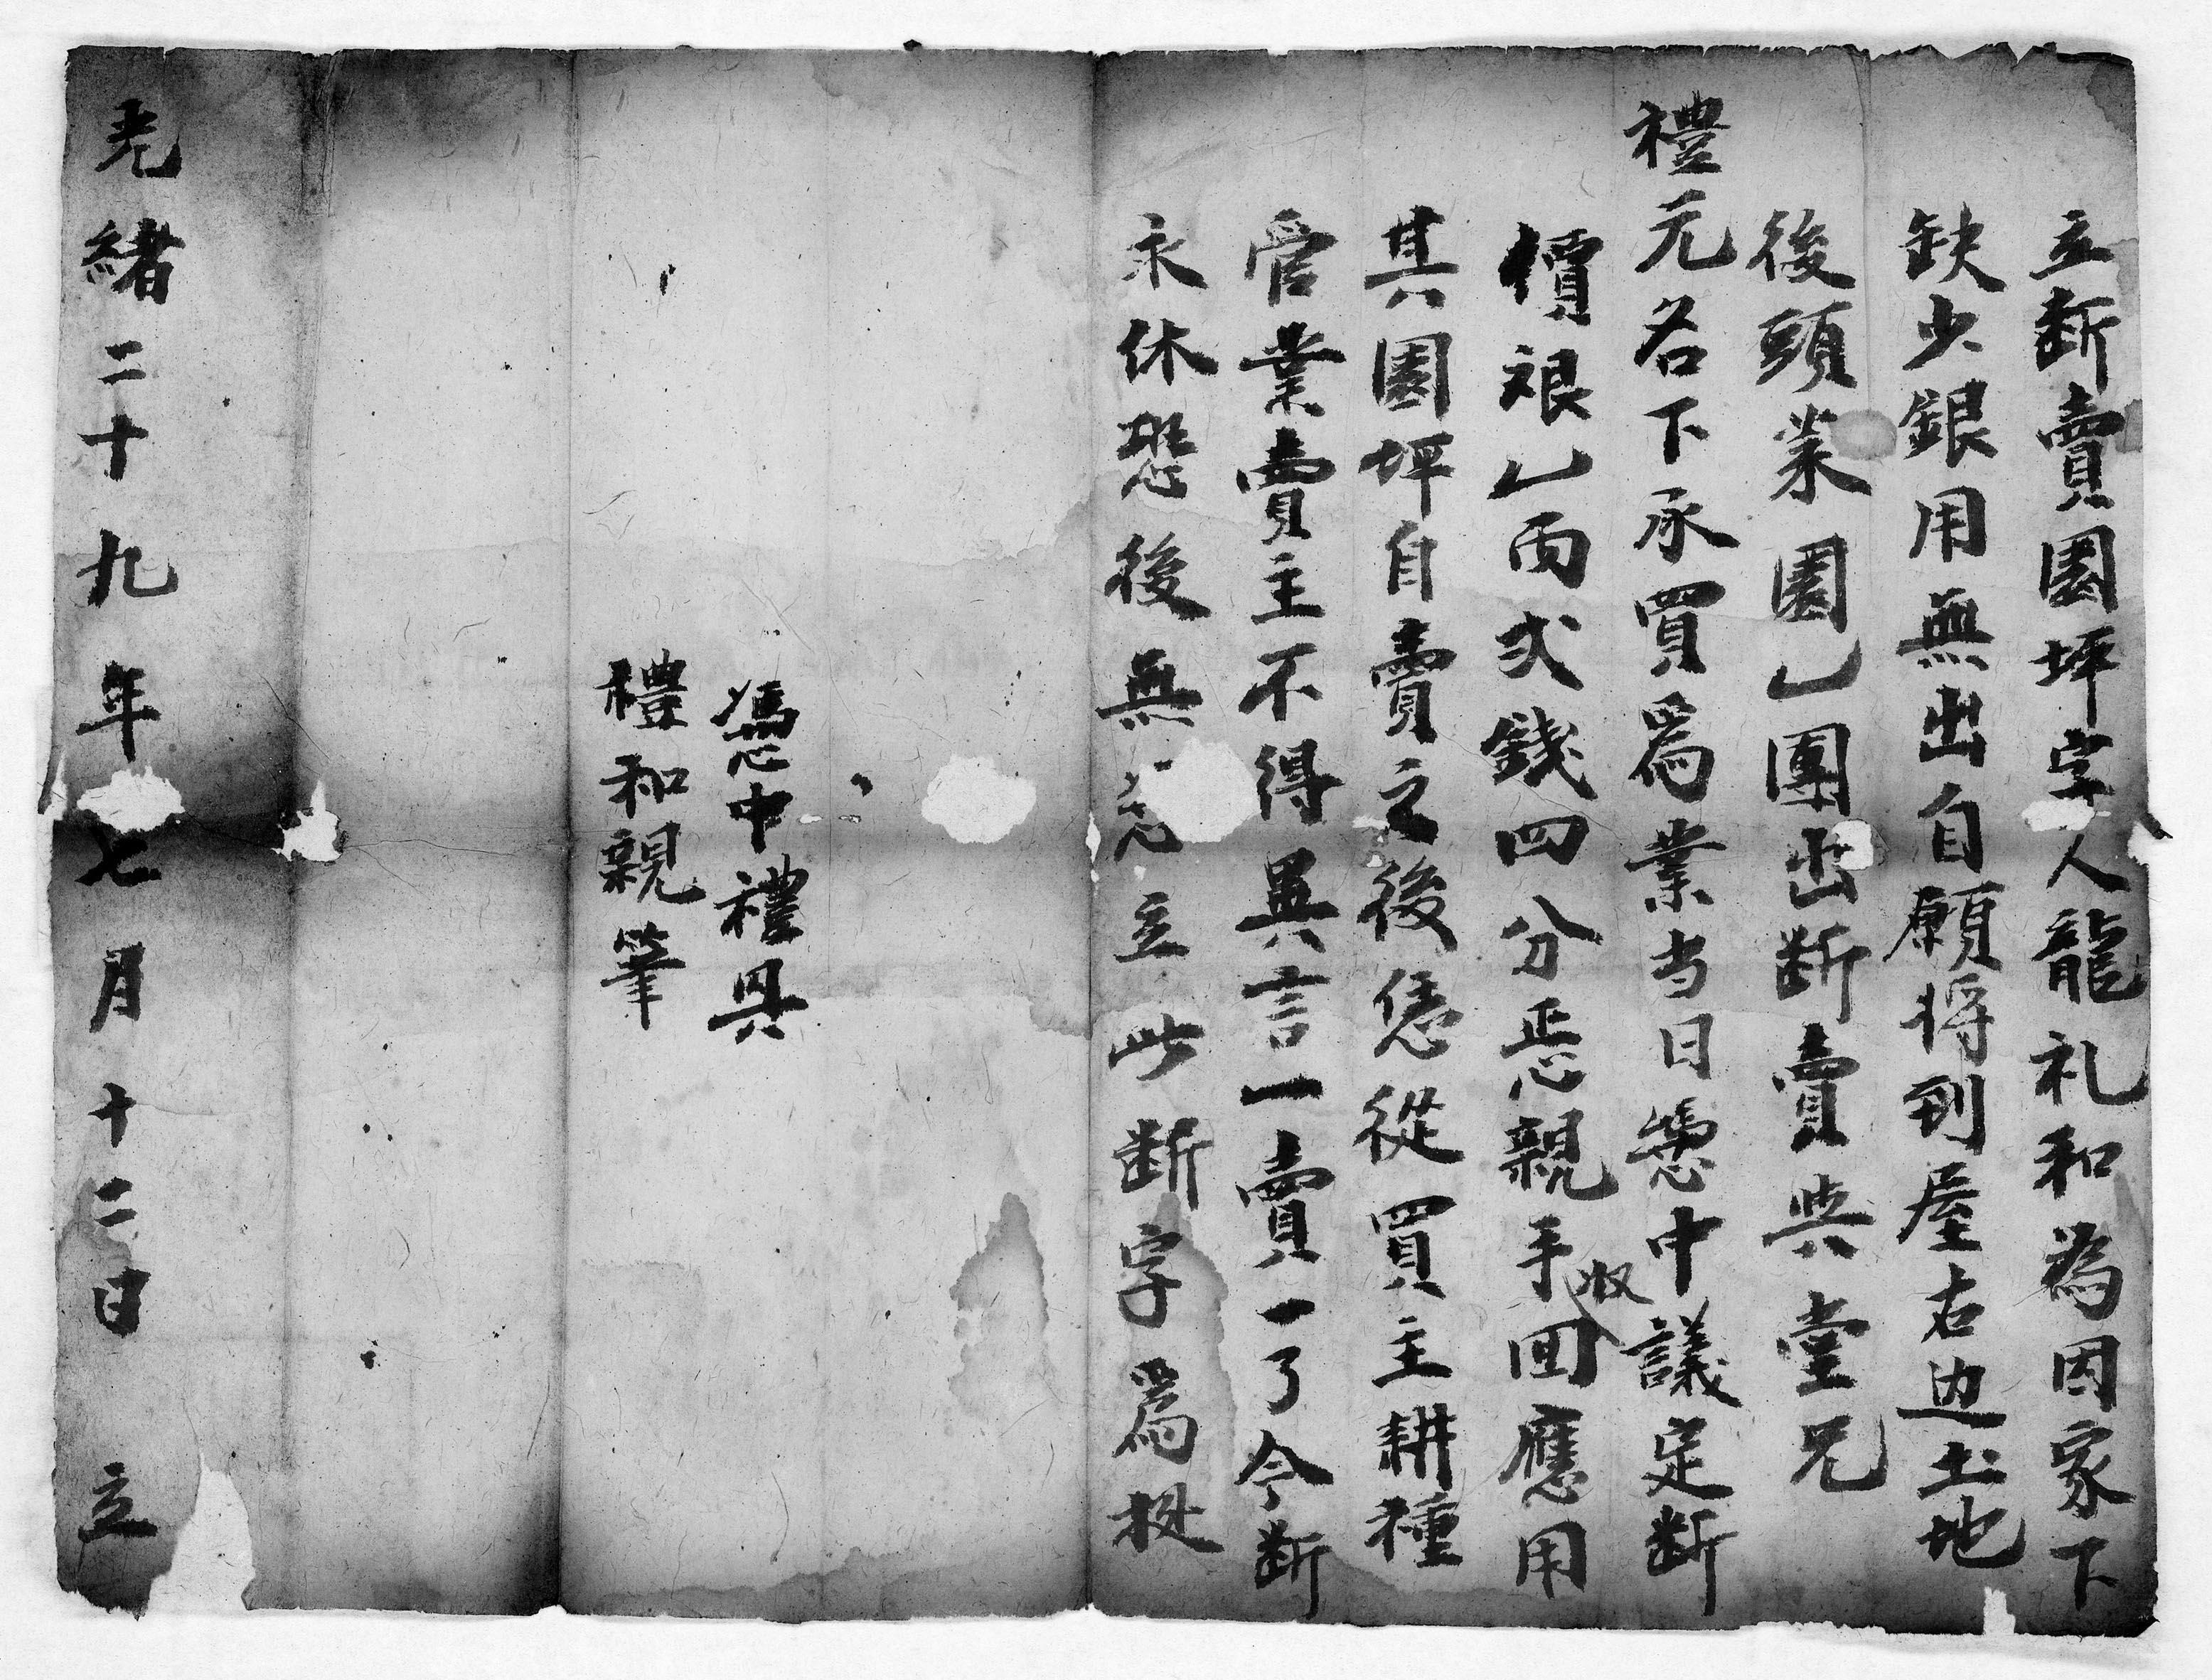 立断賣園坪字人龍礼和為因家下
缺少銀用無出自願将到屋右边土地
後頭業園乚團出断賣與堂兄
禮元名下承買爲業当日憑中議定断
價艮乚両弍錢四分恁親手收囬應用
其園坪自賣之後恁從買主耕種
官業賣主不得異言一賣一了今断
永休恐後無立此断字爲拠
憑中禮興
禮和親筆
光緒二十九年七月十二日立